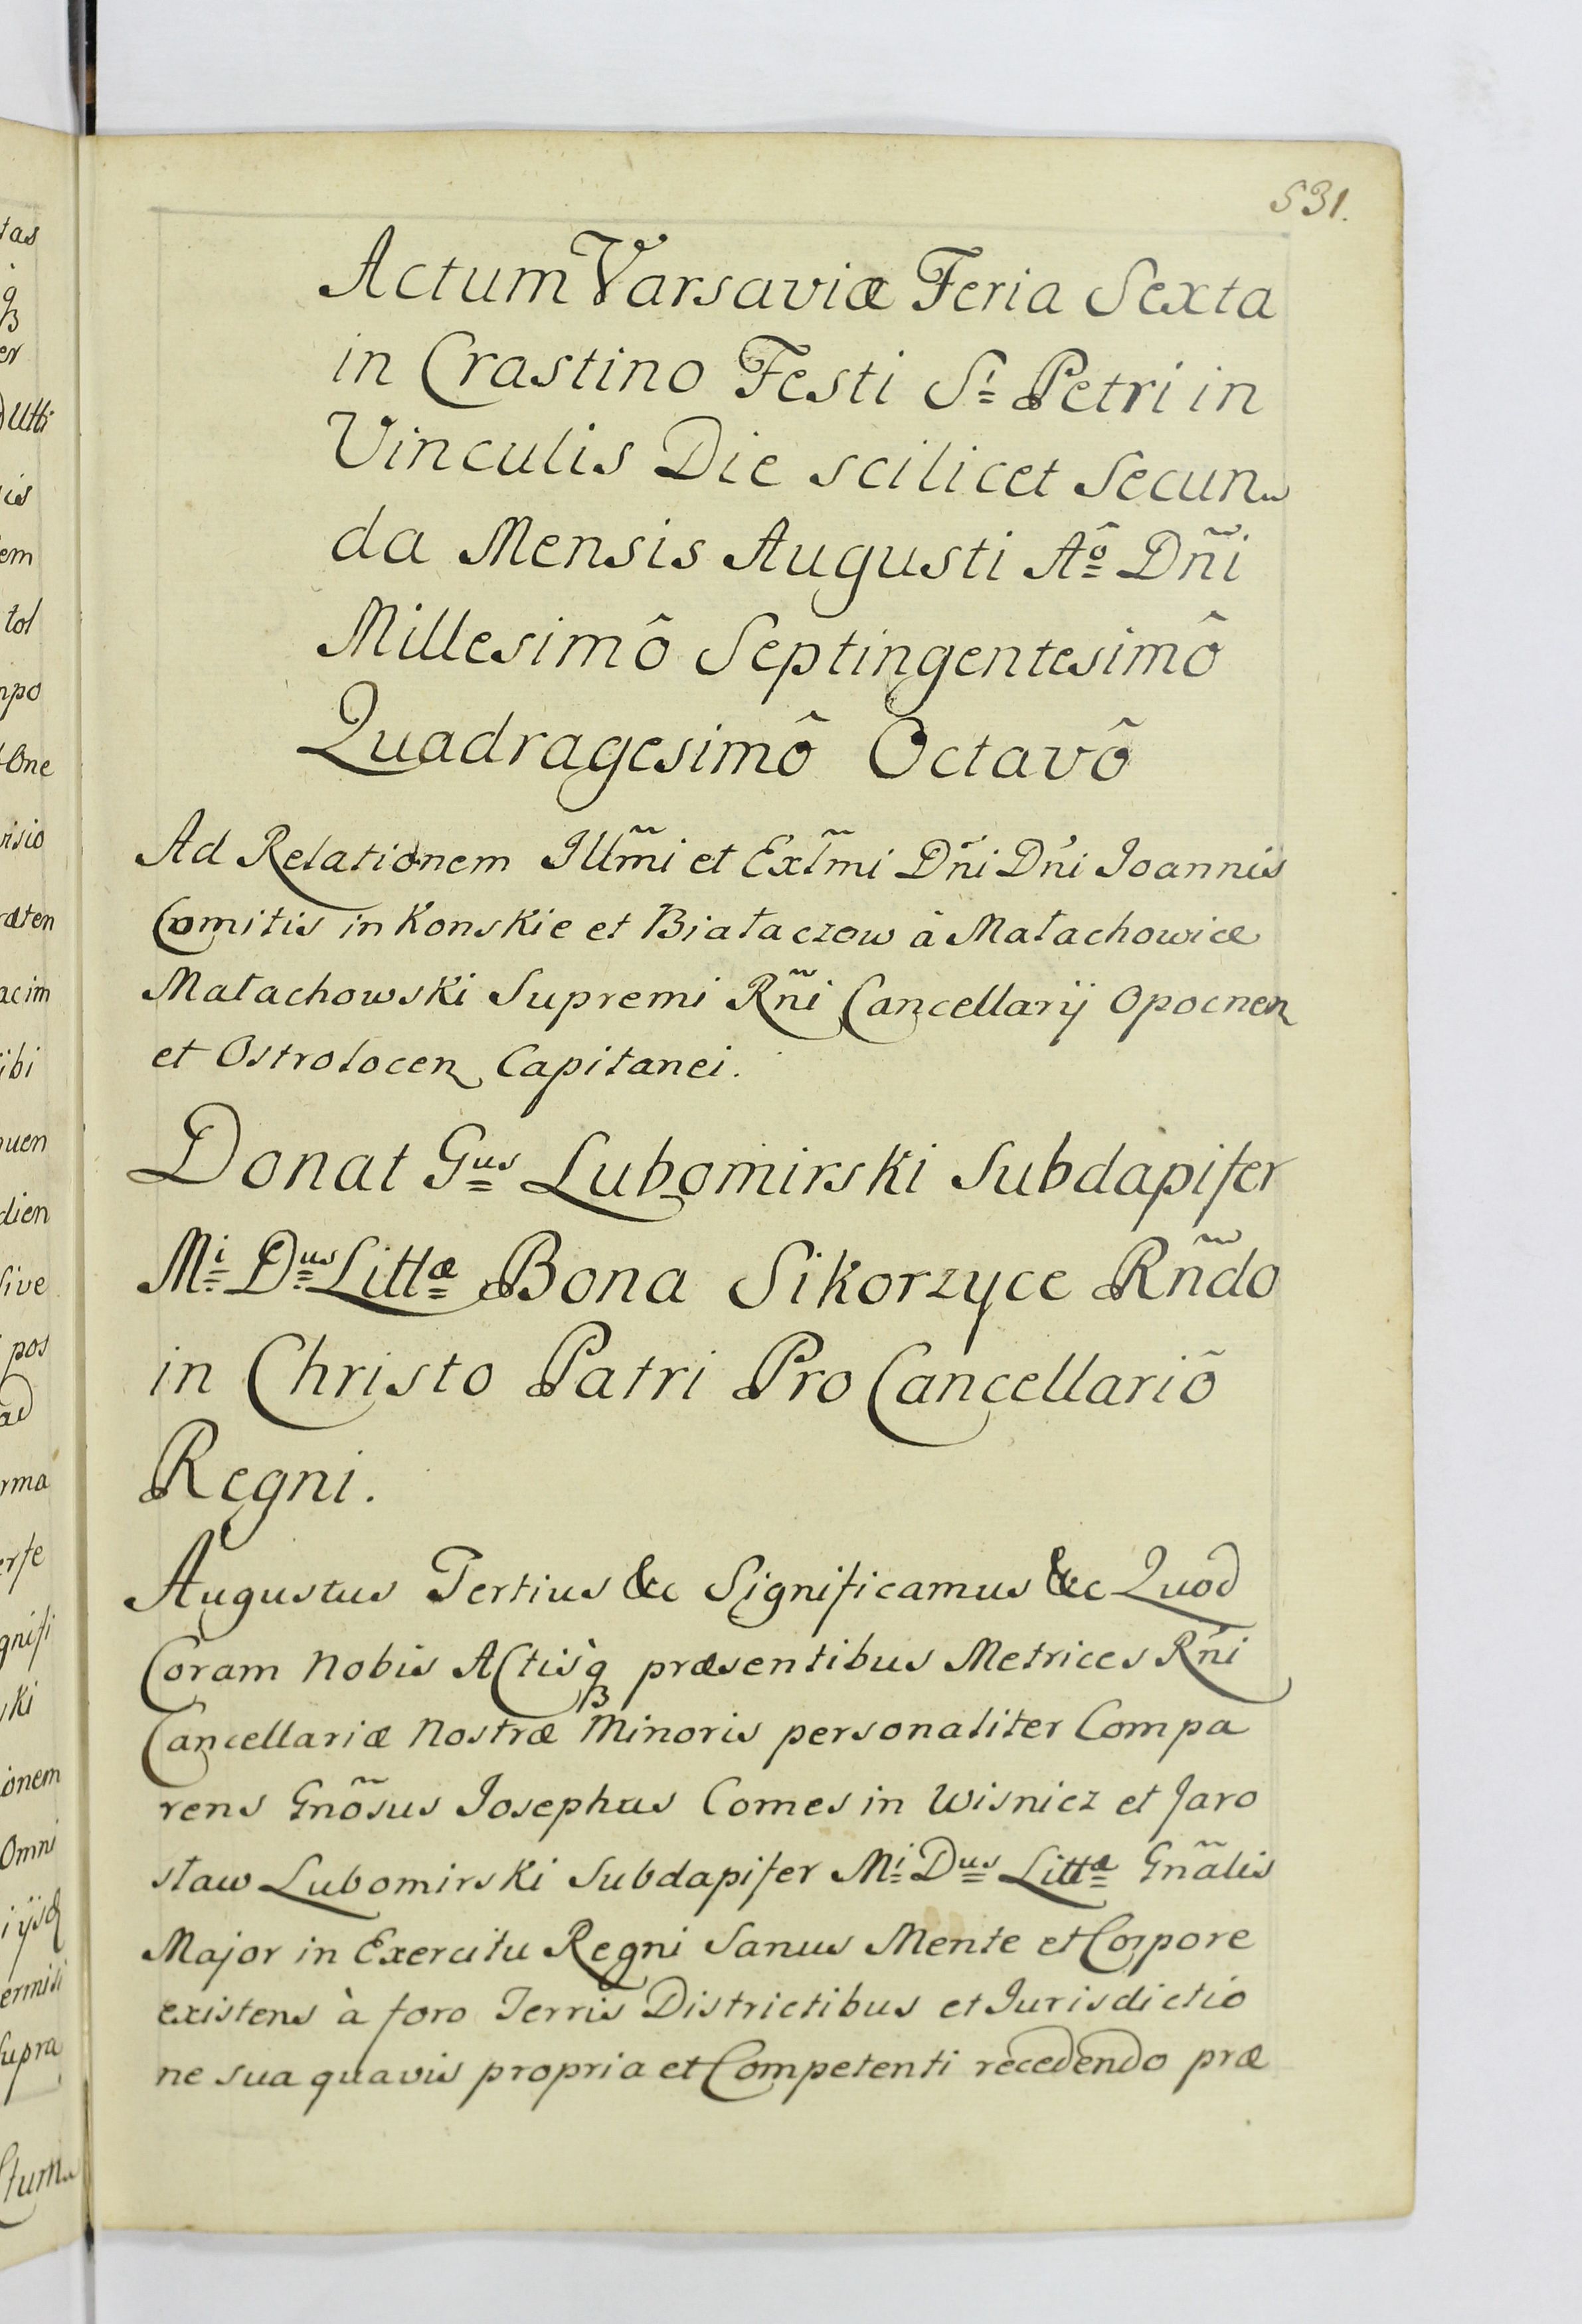 531.
Actum Varsaviæ Feria Sexta
in Crastino Festi Sⁱ Petri in
Vinculis Die scilicet Secun
da Mensis Augusti Aô Dñi
Millesimô Septingentesimô
Quadragesimô Octavô
Ad Relationem Illm̃i et Exlm̃i Dñi Dñi Joannis
Comitis in Konskie et Białaczow à Małachowice
Małachowski Supremi Rñi Cancellarij Opocnen
et Ostrołocen Capitanei.
Donat Gᵘˢ Lubomirski Subdapifer
Mⁱ Dᵘˢ Littæ Bona Sikorzyce Rñdo
in Christo Patri Pro Cancellariô
Regni.
Augustus Tertius &c Significamus &c Quod
Coram Nobis Actisq̀ præsentibus Metrices Rñi
Cancellariæ Nostræ Minoris personaliter Compa
rens Gnõsus Josephus Comes in Wisnicz et Jaro
sław Lubomirski Subdapifer Mⁱ Dᵘˢ Littæ Gnãlis
Major in Exercitu Regni Sanus Mente et Corpore
existens à foro Terris Districtibus et Jurisdictio
ne sua quavis propria et Competenti recedendo præ